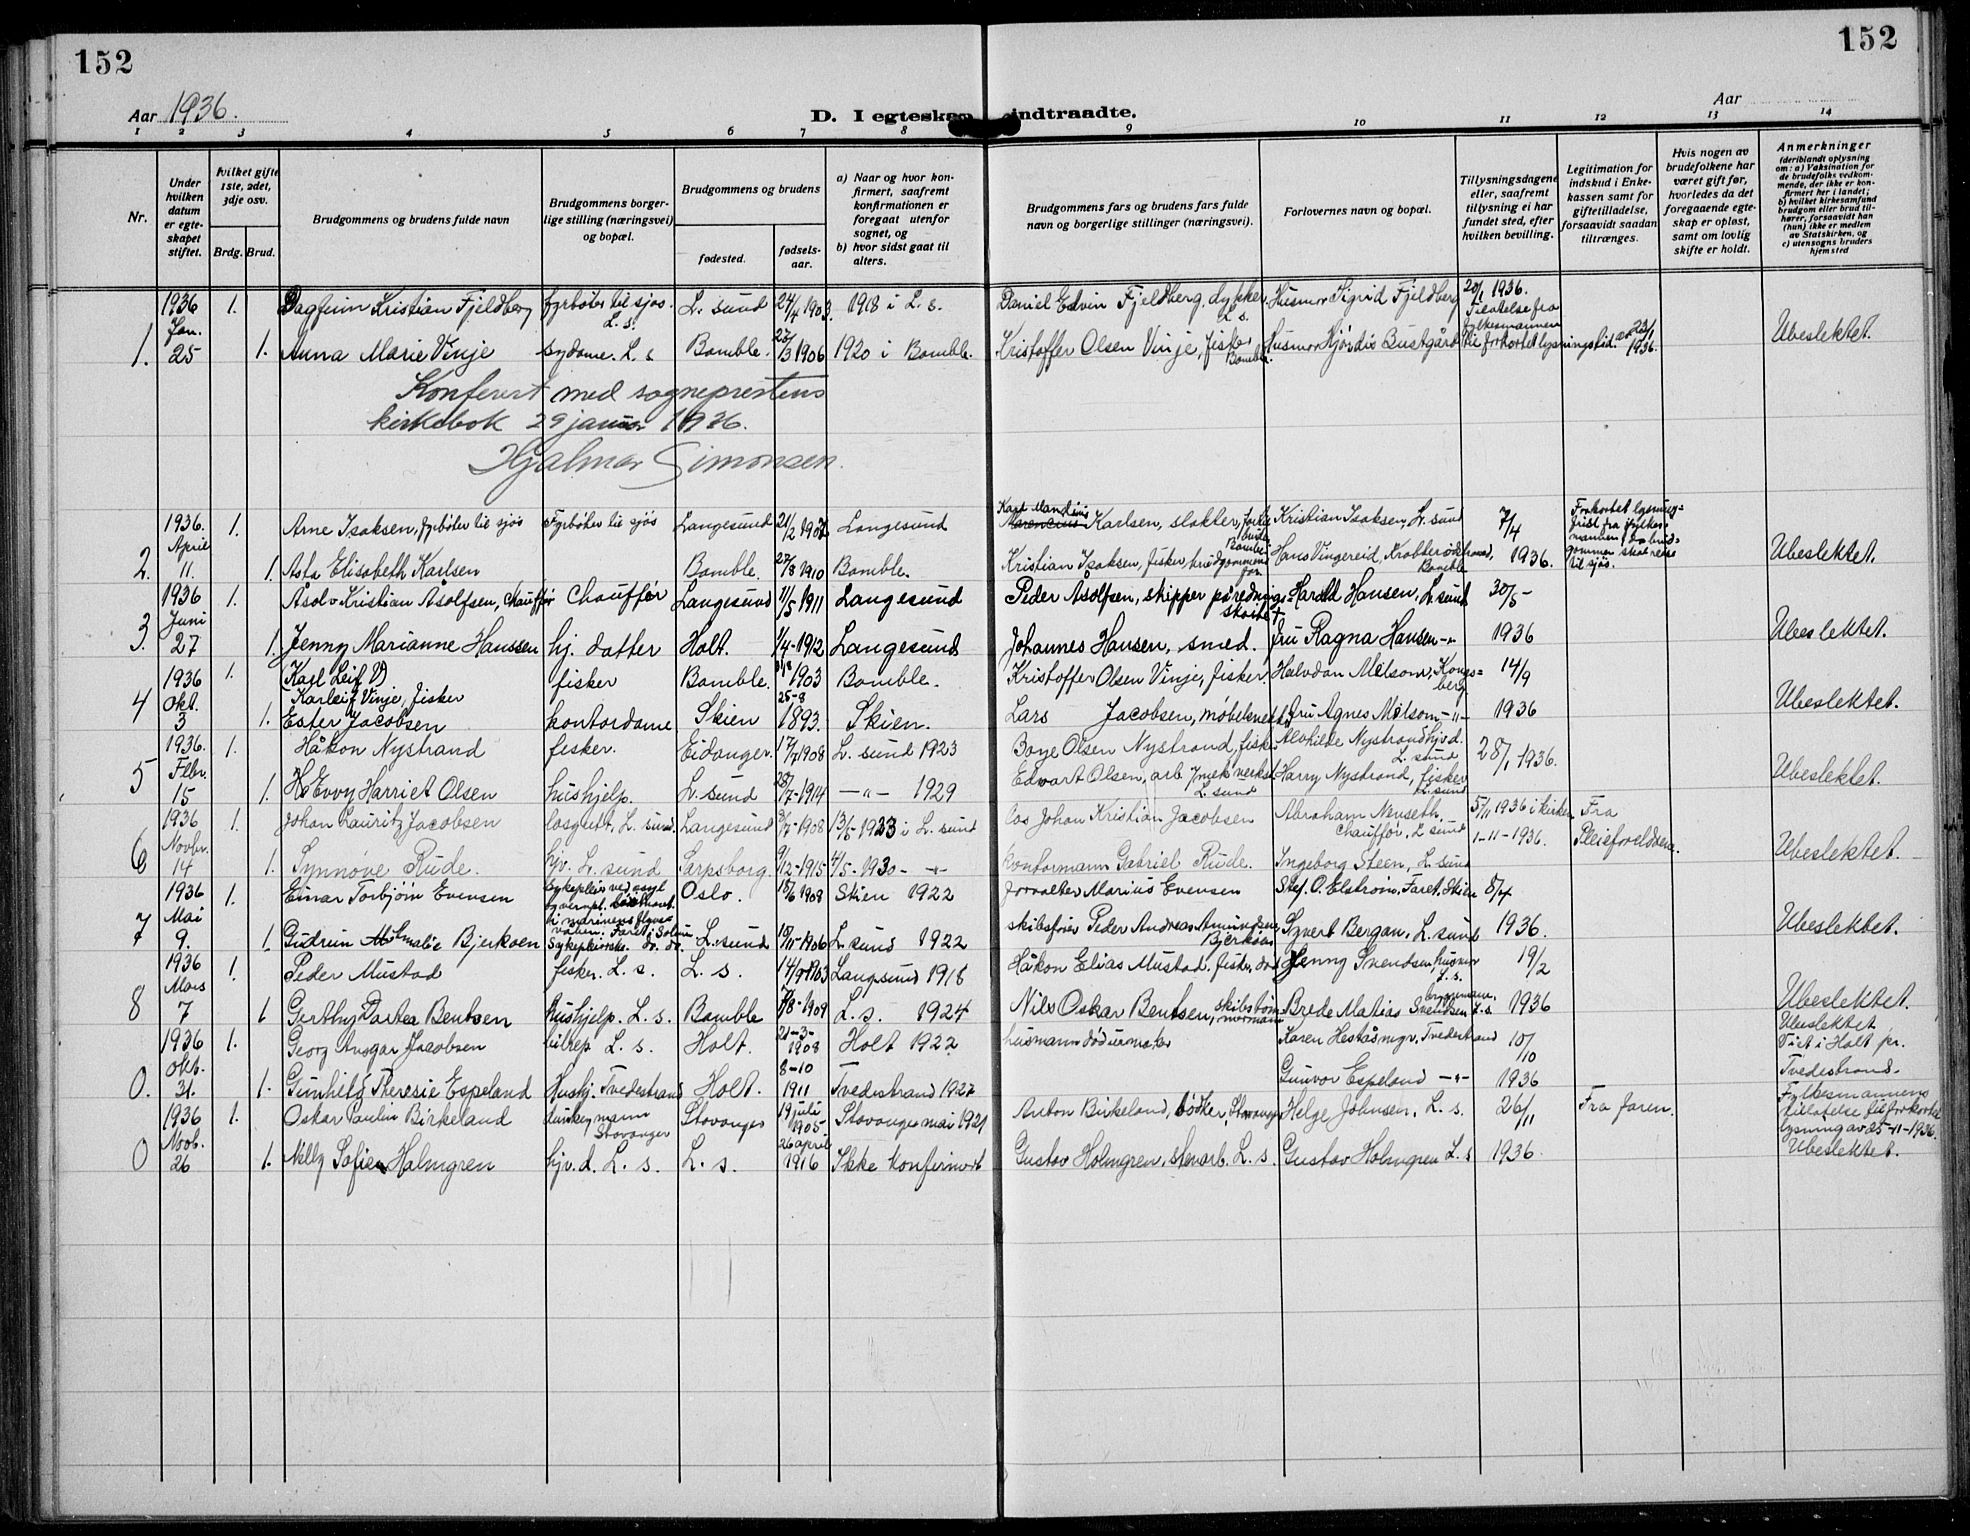 152
152
Aar 1936.
D. I egteska indtraadte.
Aar
1 2 3 4 5 6 7 8 9 10 11 12 13 14
Nr.
Under hvilken datum er egteskapet stiftet.
hvilket gifte 1ste, 2det, 3dje osv.
Brdg. Brud.
Brudgommens og brudens fulde navn
Brudgommens borgerlige stilling (næringsvei) og bopæl.
Brudgommens og brudens
fødested.
fødselsaar.
a) Naar og hvor konfirmert, saafremt konfirmationen er foregaat utenfor sognet, og
b) hvor sidst gaat til alters.
Brudgommens fars og brudens fars fulde navn og borgerlige stillinger (næringsvei).
Forlovernes navn og bopæl.
Tillysningsdagene eller, saafremt tillysning ei har fundet sted, efter hvilken bevilling.
Legitimation for indskud i Enkekassen samt for giftetilladelse, forsaavidt saadan tiltrænges.
Hvis nogen av brudefolkene har været gift før, hvorledes da det foregaaende egteskap er opløst, samt om lovlig skifte er holdt.
Anmerkninger
(deriblandt oplysning om: a) Vaksination for de brudefolks vedkommende, der ikke er konfirmert her i landet; b) hvilket kirkesamfund brudgom eller brud tilhører, forsaavidt han (hun) ikke er medlem av Statskirken, og c) utensogns bruders hjemsted
1936 1. Dagfinn Kristian Fjeldberg fyrbøter til sjøs. L. s. L. sund 24/4 1903. 1918 i L. s. Daniel Edvin Fjeldberg, dykker L. s. Husmor Sigrid Fjeldberg 20/1 1936. Tilatelse fra fylkesmannen
1. Jan. 25 1. Anna Marie Vinje sydame. L. s Bamble. 27/3 1906 1920 i Bamble. Kristoffer Olsen Vinje, fisker Bamble. Husmor Hjørdis Bustgård til forkortet lysningstid. av 23/1 1936. Ubeslektet.
Konferert med sogneprestens
kirkebok 29 januar 1936.
Hjalmar Simonsen.
1936. 1. Arne Isaksen, fyrbøter til sjøs Fyrbøter til sjøs Langesund 21/2 Langesund Karlsen, slakter, Kristian Isaksen, L. sund 7/4 Forkortet lysningsfrist fra fylkesmannen, da brudgommen skal reise til sjøs.
2. April 11. 1. Asta Elisabeth Karlsen Bamble. 27/8 1910 Bamble. Kristian Isaksen, fisker, brudgommens far. Hans Vingereid, Bamble 1936. Ubeslektet.
1936 1. Asolv Kristian Asolfsen, Chauffør Chauffør Langesund 11/5 1911 Langesund Peder Asolfsen, skipper på rednings-skøite Harald Hansen, L. sund 30/5 -
3. Juni 27 1. Jenny Marianne Hanssen hj. datter Holt. 1/4-1912 Langesund Johannes Hansen, smed. fru Ragna Hansen -"- 1936 Ubeslektet.
1936 1. (Karl Leif V) Karleif Vinje, fisker fisker Bamble. 1903 Bamble. Kristoffer Olsen Vinje, fisker, Halvdan Melsom, Kongsberg 14/9
4 Okt. 3 1. Ester Jacobsen kontordame Skien 25-8 1893. Skien. Lars Jacobsen, fru Agnes Melsom -"- 1936 Ubeslektet.
1936. 1. Håkon Nystrand fisker. Eidanger. 17/7 1908 L. sund 1923 Boye Olsen Nystrand, fisker Alvhilde Nystrand hjvd. L. sund 28/1 1936.
5 Febr. 15 1. Evvy Harriet Olsen hushjelp. L. sund 28/7-1914 -"- 1929 Edvart Olsen, arb. mek verksted L. sund Harry Nystrand, fisker L. sund Ubeslektet.
1936 1. Johan Lauritz Jacobsen losgutt, L. sund. Langesund 1908 13/5-1923 i L. sund Los Johan Kristian Jacobsen Abraham Chauffør, L. sund 5/11 1936 i kirken Fra
6 Novbr. 14 1. Synnøve Rude. hjv. L. sund Sarpsborg 9/12-1915 4/5-1930- -"- Kontormann Gabriel Rude. Ingeborg Steen, L. sund 1-11-1936. Pleieforeldrene. Ubeslektet.
1936 1. Einar Torbjørn Evensen Sykepleier ved asyl Oslo. 18/6 1908 Skien 1922 forvalter Marius Evensen Stef. O. Elstrøm, Faret, Skien 8/4
7 Mai 9. 1. Gudrun Amalie Bjerkøen Sykepleierske do. do. L. sund 1906 L. sund 1922 skibsfører Peder Andreas Amundsen Bjerkøen Syvert Bergan, L. sund 1936. Ubeslektet.
1936 1. Peder Mustad fisker. L. s. L. s. 14/9 1903 Langesund 1918 Håkon Elias Mustad, fisker, død Jenny Svendsen, husmor L. s. 19/2
8 Mars 7 1 Gerthy Dortea Bentsen hushjelp. L. s. Bamble 1909 L. s. 1924 Nils Oskar Bentsen, skibstømmermann Brede Matias Svendsen L. s. 1936 Ubeslektet.
1936 1. Georg Ansgar Jacobsen L. s. Holt. 21-3-1908 Holt 1922 Karen Heståsmyr, Tvedestrand 10/10 Ubeslektet Viet i Holt pr. Tvedestrand.
0. Okt. 31. 1. Gunhild Theresie Espeland Hushj. Tvedestrand Holt. 8-10 1911 Tvedestrand 1927 Gunvor Espeland -"- 1936
1936 1. Oskar Paulin Birkeland Stavanger Stavanger 19 juli 1905 Stavanger mai 1921 Anton Birkeland, bødker, Stavanger Helge Johnsen, L. s. 26/11 Fra faren. Fylkesmannens tilatelse til forkortet lysning av 25-11-1936.
0 Novb. 26 1. Nelly Sofie Holmgren hjv. d. L. s. L. s. 26 april 1916 Ikke konfirmert Gustav Holmgren, stenarb. L. s. Gustav Holmgren L. s 1936. Ubeslektet.